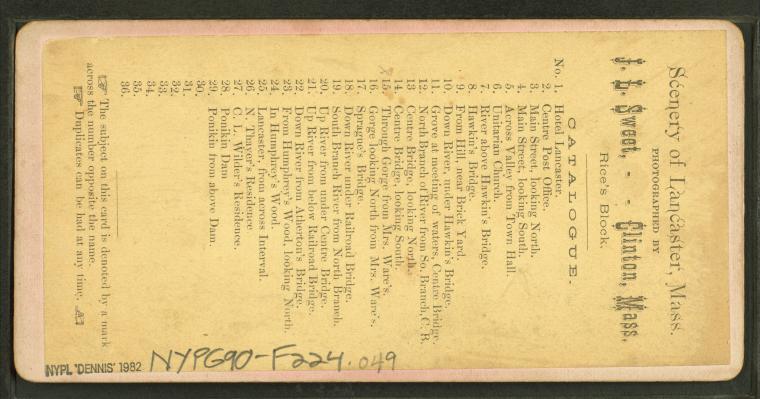 Scenery of Lancaster, Mass.
PHOTOGRAPHED BY
J. L. Sweet, - - Clinton, Mass,
Rice's Block.
CATALOGUE.
No. 1. Hotel Lancaster.
2. Centre Post Office.
3. Main Street, looking North.
4. Main Street, looking South.
5. Across Valley from Town Hall.
6. Unitarian Church.
7. River above Hawkin's Bridge.
8. Hawkin's Bridge.
9. From Hill, near Brick Yard.
10. Down River, under Hawkin's Bridge.
11. Grove at meeting of waters, Centre Bridge.
12. North Branch of River from So. Branch, C. B.
13 Centre Bridge, looking North.
14. Centre Bridge, looking South.
15. Through Gorge from Mrs. Ware's.
16. Gorge looking North from Mrs. Ware's.
17. Sprague's Bridge.
18. Down River under Railroad Bridge.
19. South Branch River from North Branch.
20. Up River from under Centre Bridge.
21. Up River from below Railroad Bridge.
22. Down River from Atherton's Bridge.
23. From Humphrey's Wood, looking North.
24. In Humphrey's Wood.
25. Lancaster, from across Interval.
26. N. Thayer's Residence
27. C. L. Wilder's Residence.
28. Ponikin Dam.
29. Ponikin from above Dam.
30.
31.
32.
33.
34.
35.
36.
☞ The subject on this card is denoted by a mark
across the number opposite the name.
☞ Duplicates can be had at any time. ☜
NYPL 'DENNIS' 1982 NYPG90-F224.049